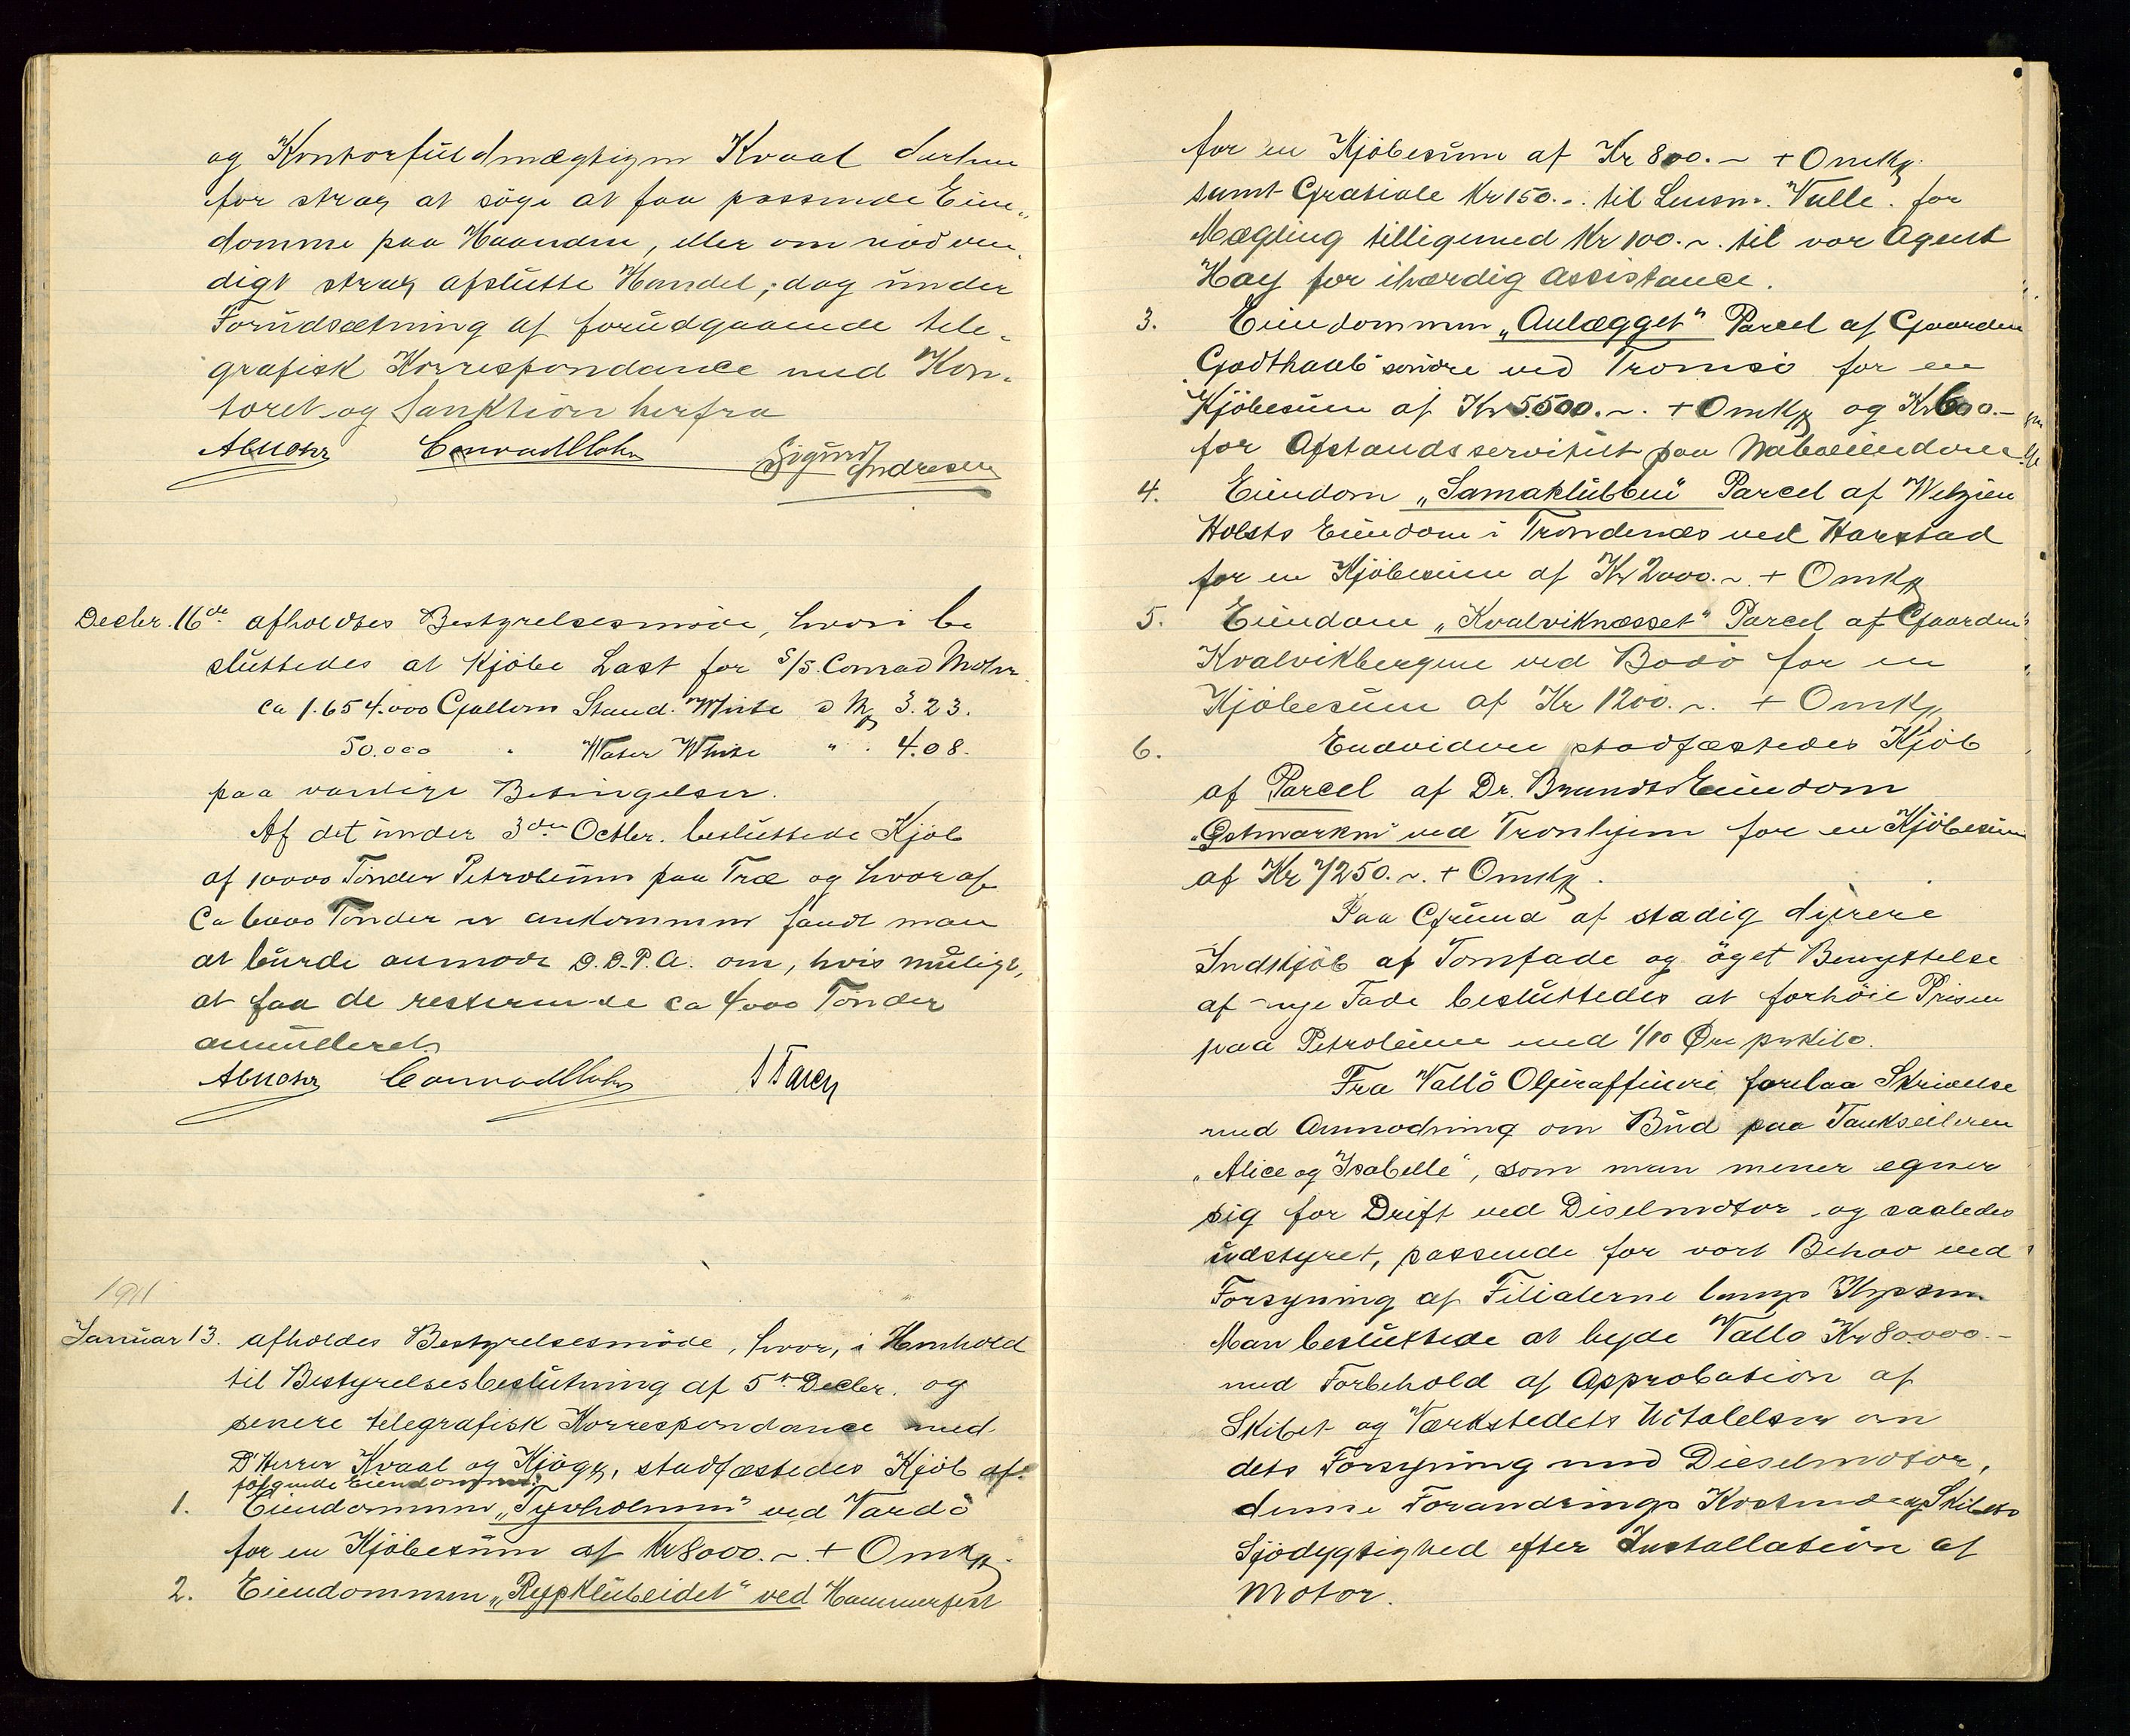 og Kontorfuldmægtigen Kvaal derhen
for strax at söge at faa passende Eien„
domme paa Haanden, eller om nödven„
digt strax afslutte Handel, dog under
Forudsætning af forudgaaende tele„
grafisk Korrespondance med Kon„
toret og Sanktion herfra
AbMohr Conrad Mohr Sigurd Andresen
Decbr. 16de afholdtes Bestyrelsesmöde, hvori be
sluttedes at kjöbe Last for S/S. Conrad Mohr
ca 1.654.000 Gallons Stand. White a 3.23.
50.000 " Water White " . 4.08.
paa vanlige Betingelser.
Af det under 3die Octbr. besluttede Kjöb
af 10000 Tönder Petroleum paa Træ og hvoraf
ca 6000 Tönder er ankommen fandt man
at burde anmode D.D.P.A. om, hvis muligt,
at faa de resterende ca 4000 Tönder
annulleret.
AbMohr Conrad Mohr
1911
Januar 13. afholdes Bestyrelsesmöde, hvor, i Henhold
til Bestyrelsesbeslutning af 5te Decbr. og
senere telegrafisk Korrespondance med
D'Herrer Kvaal og Kjöge, stadfæstedes Kjöb af
fölgende Eiendomme:
1. Eiendommen „Tyvholmen" ved Vardö
for en Kjöbesum af Kr 8000.~ + Omkg.
2. Eiendommen „Rypklubeidet" ved Hammerfest
for en Kjöbesum af Kr 800.~ + Omkg.
samt Gratiale Kr 150.~. til Lensm. Valle. for
Mægling tilligemed Kr 100.~. til vor Agent
Hay for ihærdig Assistance.
3. Eiendommen „Anlægget" Parcel af Gaarden
„Godthaab" söndre ved Tromsö for en
Kjöbesum af Kr 5.500.~. + Omkg og Kr 600.-
for Afstandsservitut paa Naboeiendom
4. Eiendom „Samaklubben" Parcel af Wetzien
Holsts Eiendom i Trondenes ved Harstad
for en Kjöbesum af Kr 2000.~. + Omkg
5. Eiendom „Kvalviknæsset" Parcel af Gaarden
Kvalvikbergene ved Bodö for en
Kjöbesum af Kr 1200.~. + Omkg
6. Endvidere stadfæstedes Kjöb
af Parcel af Dr. Brandts Eiendom
„Östmarken" ved Tronhjem for en Kjöbesum
af Kr 7250.~. + Omkg.
Paa Grund af stadig dyrere
Indkjöb af Tomfade og öget Benyttelse
af nye Fade besluttedes at forhöie Prisen
paa Petroleum med 1/10 Øre pr Kilo.
Fra Vallö Oljeraffineri forelaa Skrivelse
med Anmodning om Bud paa Tankseileren
„Alice og Isabelle", som man mener egner
sig for Drift ved Diselmotor og saaledes
udstyret, passende for vort Behov ved
Forsyning af Filialerne langs Kysten.
Man besluttede at byde Vallö Kr 80.000.-
med Forbehold af Approbation af
Skibet og Værkstedets Udtalelser om
dets Forsyning med Dieselmotor,
denne Forandrings Kostende og Skibets
Sjödygtighed efter Installation af
Motor.